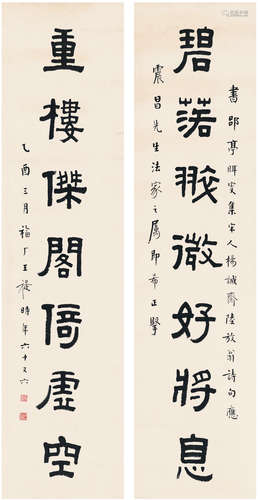 碧落微好將息
書郘亭眲叟集宋人楊誠齋陸放翁詩句應
震昌先生法家之屬即希正擘
重樓傑閣倚虛空
乙酉三月福厂王禔時年六十又六